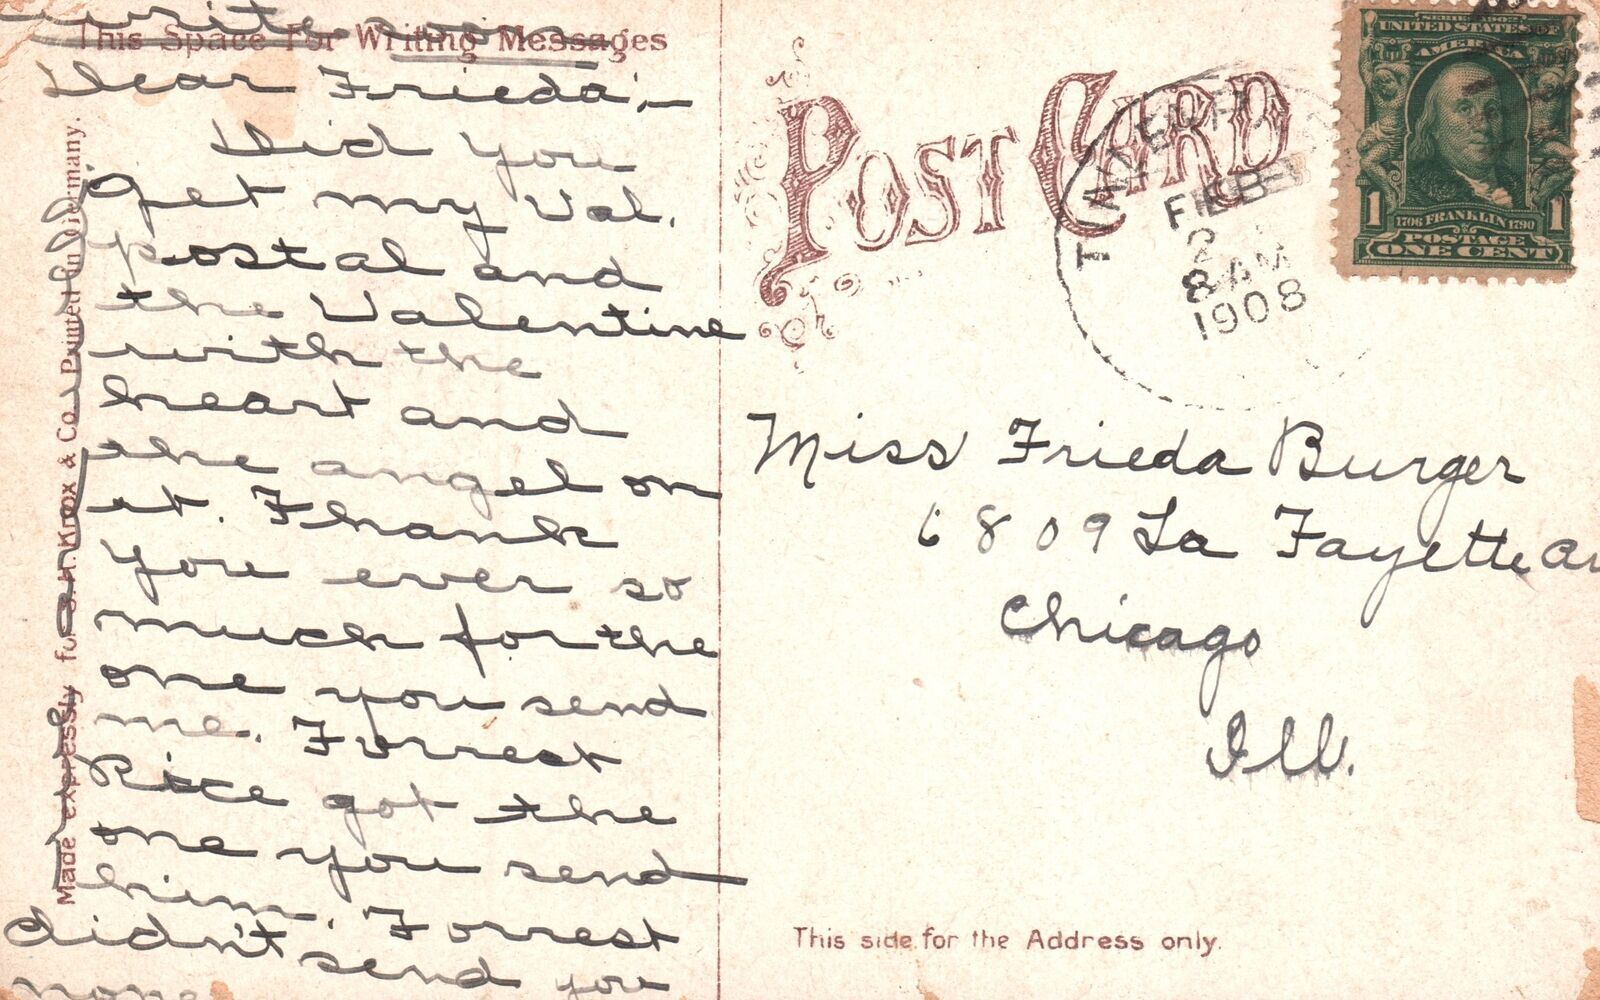 write soon
This Space For Writing Messages
Dear Frieda,—
Did you
get my Val.
postal and
the Valentine
with the
heart and
the angel on
it. Thank
you ever so
much for the
one you send
me. Forrest
Rice got the
one you send
him. Forrest
didn't send you
none
Made expressly for S.H. Knox & Co. Printed in Germany.
POST CARD
FEB
2
8 AM
1908
SERIES 1902
UNITED STATES OF
AMERICA
1 1706 FRANKLIN 1790 1
POSTAGE
ONE CENT
Miss Frieda Burger
6809 La Fayette Av
Chicago
Ill.
This side for the Address only.